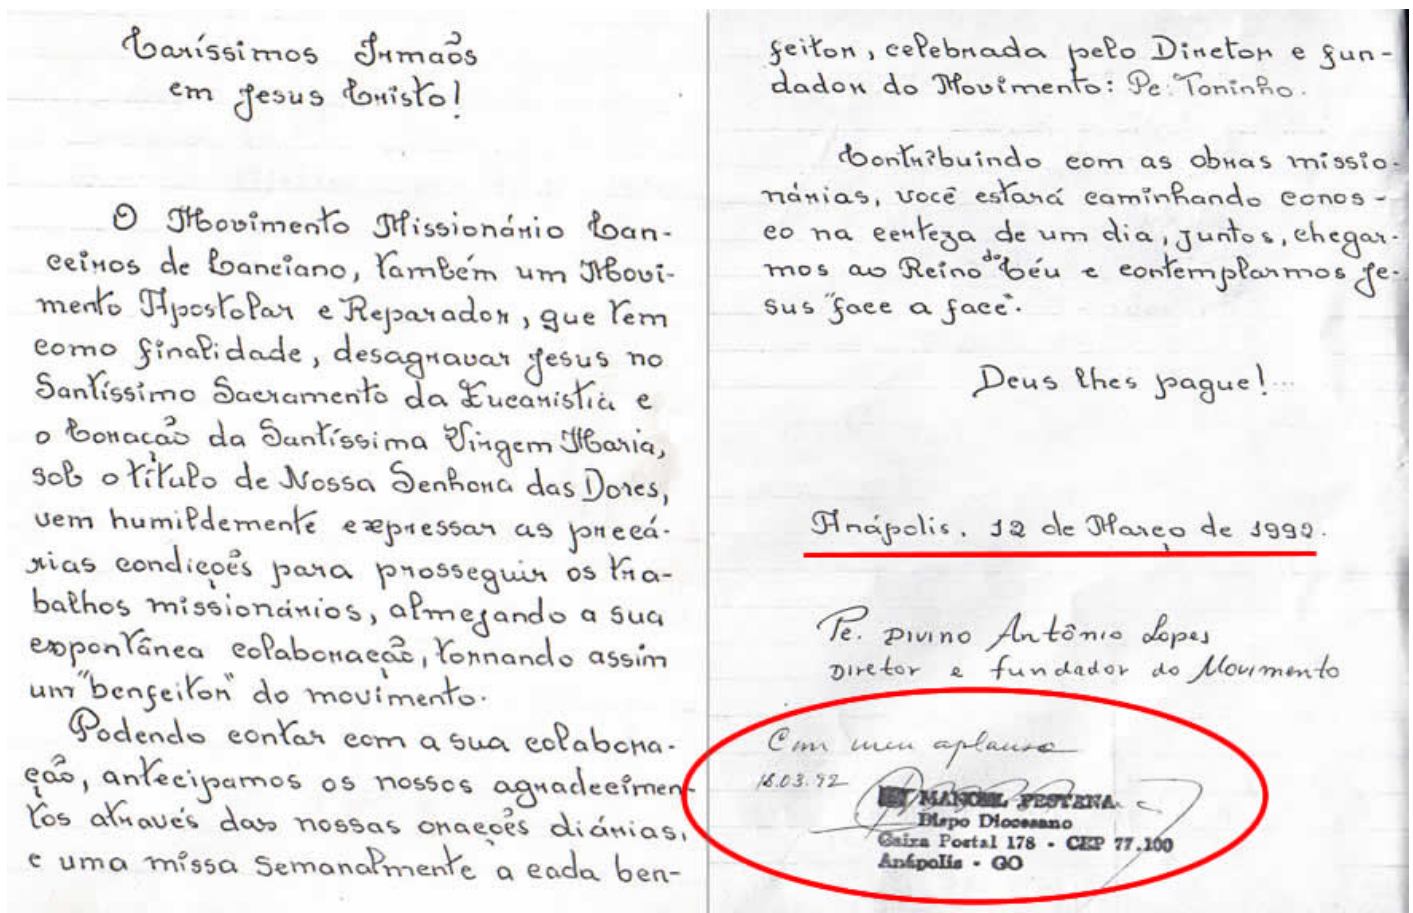 Caríssimos Irmãos
em Jesus Cristo!
O Movimento Missionário Lan-
ceiros de Lanciano, também um Movi-
mento Apostolar e Reparador, que tem
como finalidade, desagravar Jesus no
Santíssimo Sacramento da Eucaristia e
o Coração da Santíssima Virgem Maria,
sob o título de Nossa Senhora das Dores,
vem humildemente expressar as precá-
rias condições para prosseguir os tra-
balhos missionários, almejando a sua
expontânea colaboração, tornando assim
um "benfeitor" do movimento.
Podendo contar com a sua colabora-
ção, antecipamos os nossos agradecimen-
tos através das nossas orações diárias,
e uma missa semanalmente à cada ben-
feitor, celebrada pelo Diretor e fun-
dador do Movimento: Pe. Toninho.
Contribuindo com as obras missio-
nárias, você estará caminhando conos-
co na certeza de um dia, juntos, chegar-
mos ao Reino do Céu e contemplarmos Je-
sus "face a face".
Deus lhes pague!...
Anápolis, 12 de Março de 1992.
Pe. Divino Antônio Lopes
Diretor e fundador do Movimento
Com meu aplauso
18.03.92
MANOEL PESTANA
Bispo Diocesano
Caixa Postal 178 - CEP 77.100
Anápolis - GO